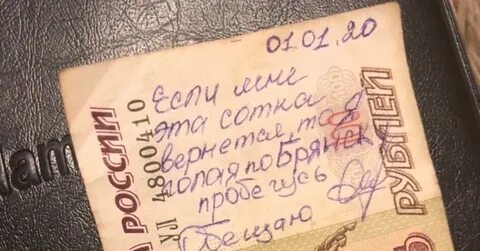 01.01.20
Если мне
эта сотка
вернется, то я
голая по Брянску
пробегусь
Обещаю
РОССИИ
УЛ 4800410
РУБЛЕЙ
Nam